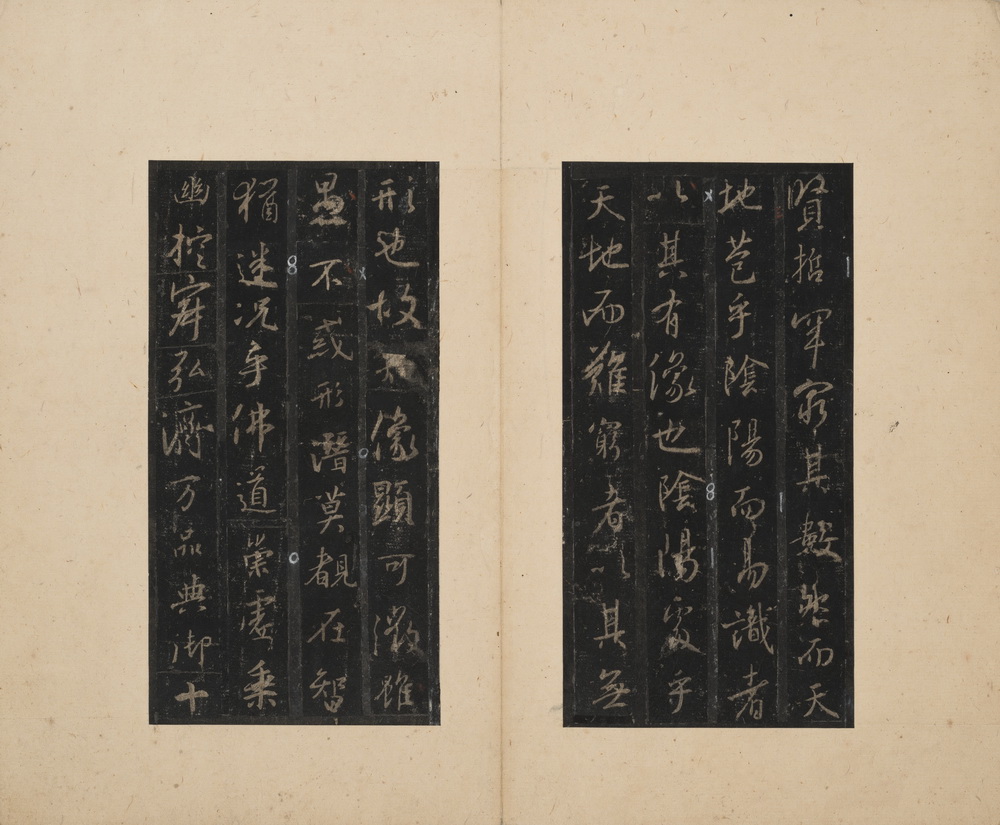 賢哲罕窮其數然而天
地苞乎陰陽而易識者
以其有像也陰陽處乎
天地而難窮者以其無
形也故像顯可徵雖
愚不惑形潛莫覩在智
猶迷況乎佛道崇虛乘
幽控寂弘濟万品典御十